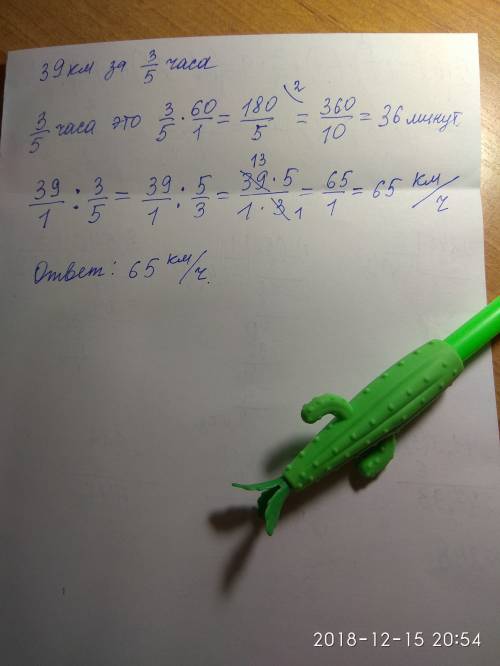 39 км за 3/5 часа
3/5 часа это 3/5 · 60/1 = 180/5 ⁽² = 360/10 = 36 минут
39/1 : 3/5 = 39/1 · 5/3 = 39·5/1·3 (13, 1) = 65/1 = 65 км/ч
Ответ: 65 км/ч.
2018-12-15 20:54